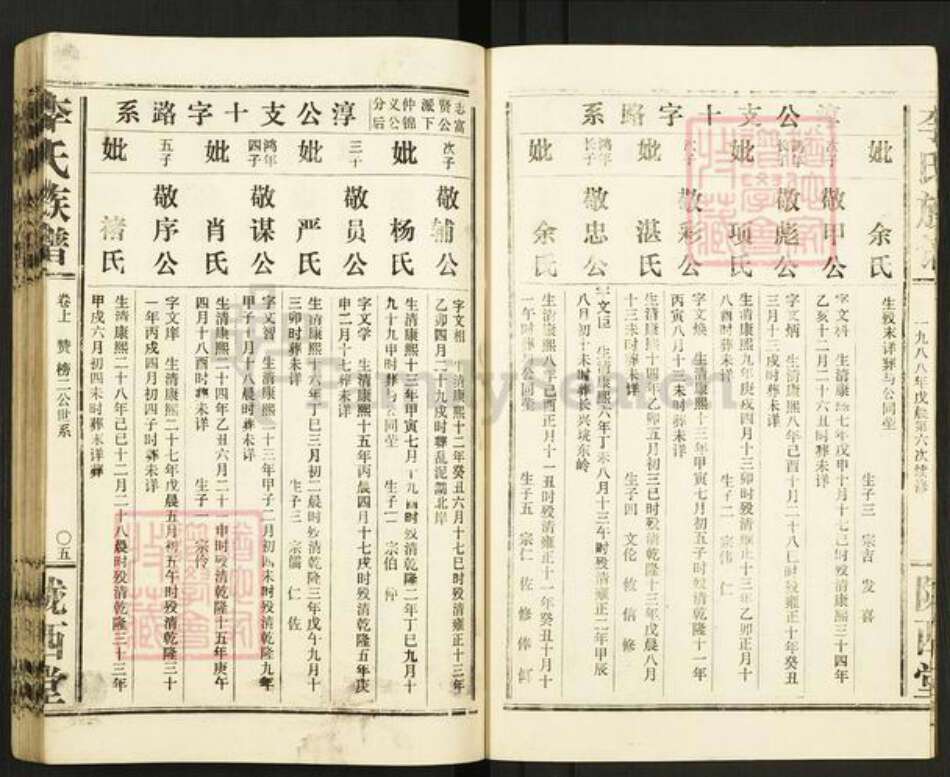 余氏
妣
生殁未详葬与公同茔
生子三 宗吉 发 喜
淳公支十字路系
次子
敬甲公
鸿年
长子
敬彪公
妣
项氏
生清康熙九年庚戌四月十三卯时殁清雍正十三年乙卯正月十
八酉时葬未详 生子二 宗伟 仁
次子
敬彩公
字文焕 生清康熙十三年甲寅七月初五子时殁清乾隆十一年
丙寅八月十三未时葬未详
妣
湛氏
生清康熙十四年乙卯五月初三巳时殁清乾隆十三年戊晨八月
十三未时葬未详 生子四 文伦 攸 信 修
鸿年
长子
敬忠公
八月初十未时葬长兴垅东岭
妣
余氏
生清康熙八年己酉正月十一丑时殁清雍正十一年癸丑十月十
一午时葬与公同茔 生子五 宗仁 佐 修 俸
一九八八年戊晨第六次续修
李氏族谱
陇西堂
志富
贤公
派下
仲锦
义公
分后
淳公支十字路系
次子
敬辅公
字文相 生清康熙十二年癸丑六月十七巳时殁清雍正十三年
乙卯四月二十九戌时葬乱泥湖北岸
妣
杨氏
生清康熙十三年甲寅七月十九酉时殁清乾隆二年丁巳九月十
九十九申时葬与公同茔 生子二 宗伯 仲
三子
敬员公
字文学 生清康熙十五年丙晨四月十七戌时殁清乾隆五年庚
申二月十七葬未详
妣
严氏
生清康熙十六年丁巳三月初二晨时殁清乾隆三年戊午九月十
三卯时葬未详 生子三 宗儒 仁 佐
鸿年
四子
敬谋公
字文智 生清康熙二十三年甲子二月初四未时殁清乾隆九年
甲子十月十八晨时葬未详
妣
肖氏
生清康熙二十四年乙丑六月二十一申时殁清乾隆十五年庚午
四月十八酉时葬未详 生子一 宗伶
五子
敬序公
字文庠 生清康熙二十七年戊晨五月初五午时殁清乾隆三十
一年丙戌四月初四子时葬未详
妣
褚氏
生清康熙二十八年己巳十二月二十八晨时殁清乾隆三十三年
甲戌六月初四未时葬未详葬
李氏族谱
卷上 赞榜二公世系
〇五
陇西堂
FamilySearch